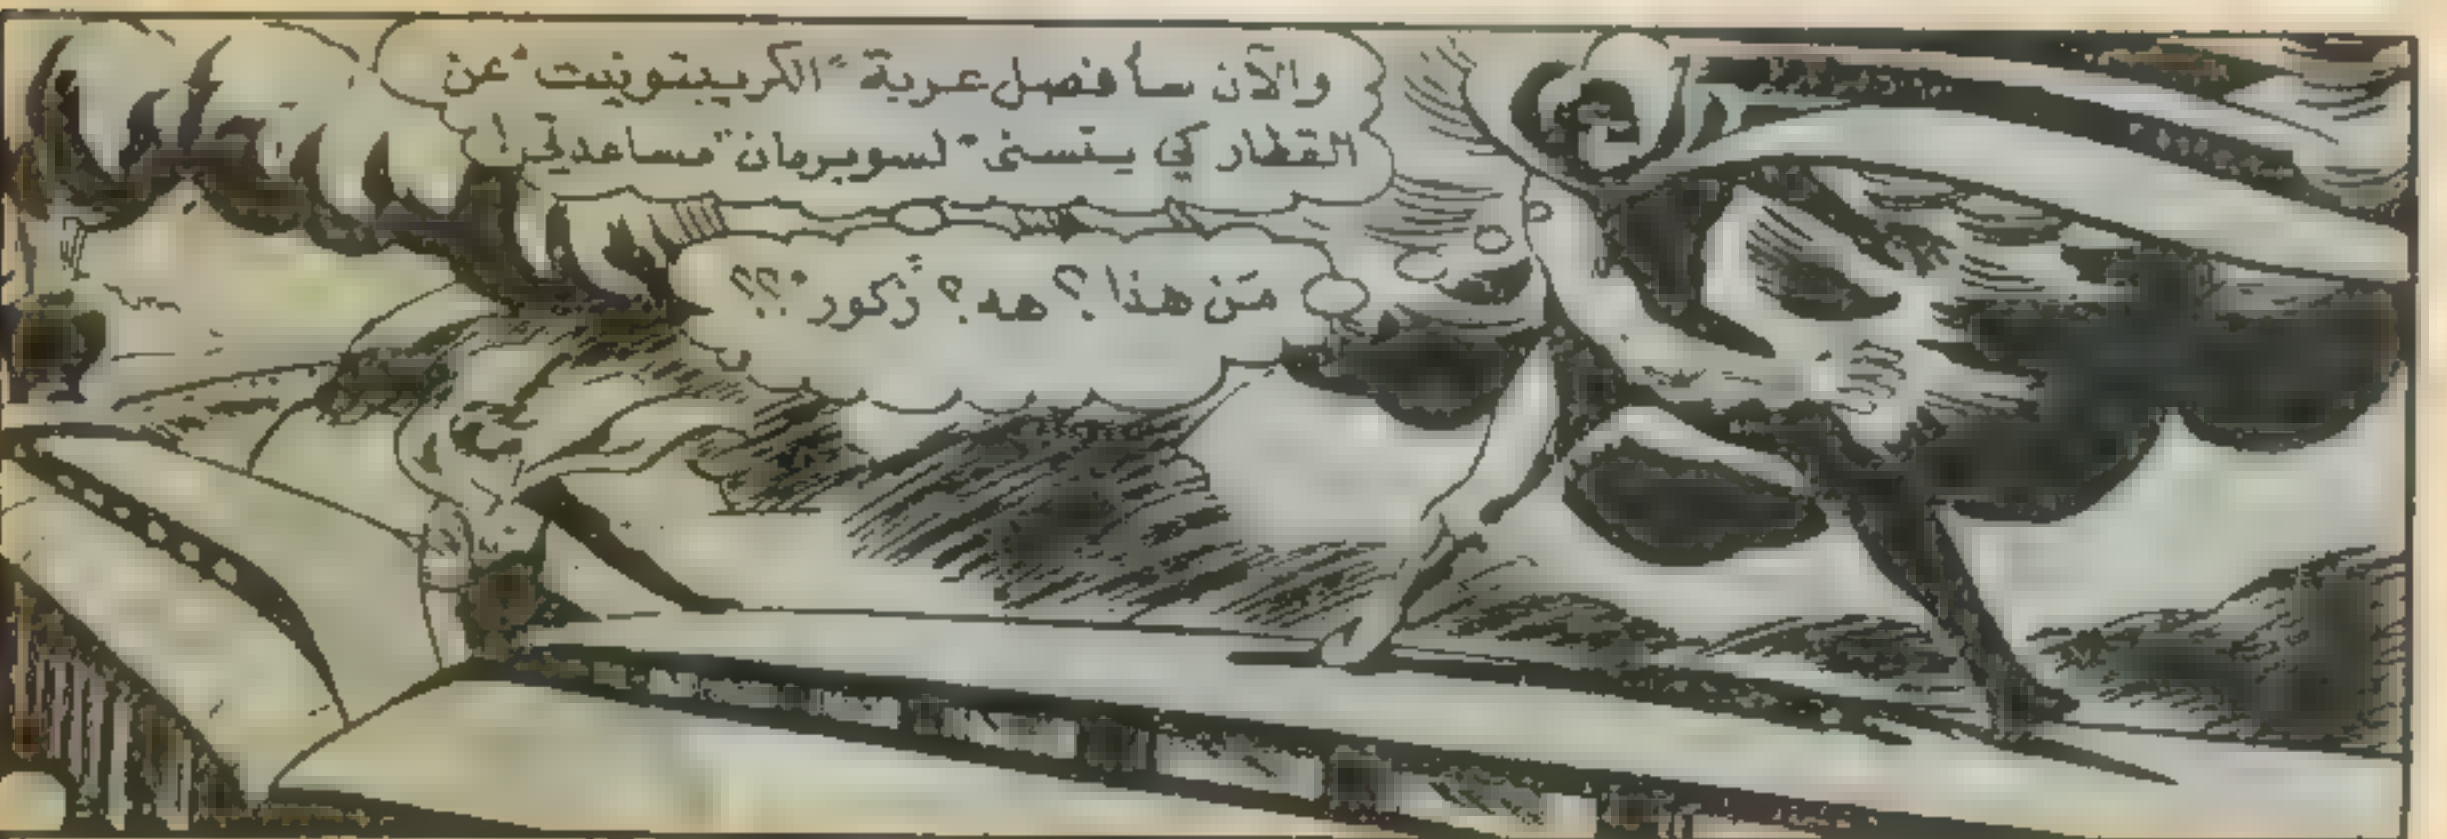 والآن سأفصل عربة "الكريبتونيت" عن
القطار كي يتسنى "لسوبرمان" مساعدتي!
مَن هذا؟ هه؟ "زكور"؟؟